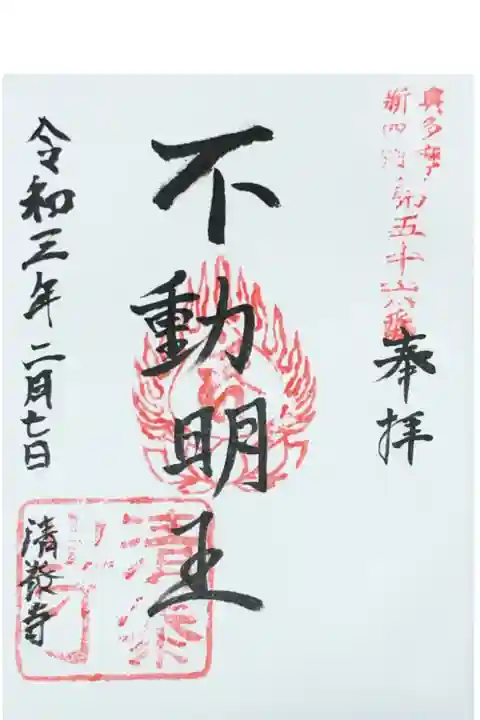 奥多摩
新四国
第五十六番
奉拝
不動明王
令和三年二月七日
清發寺